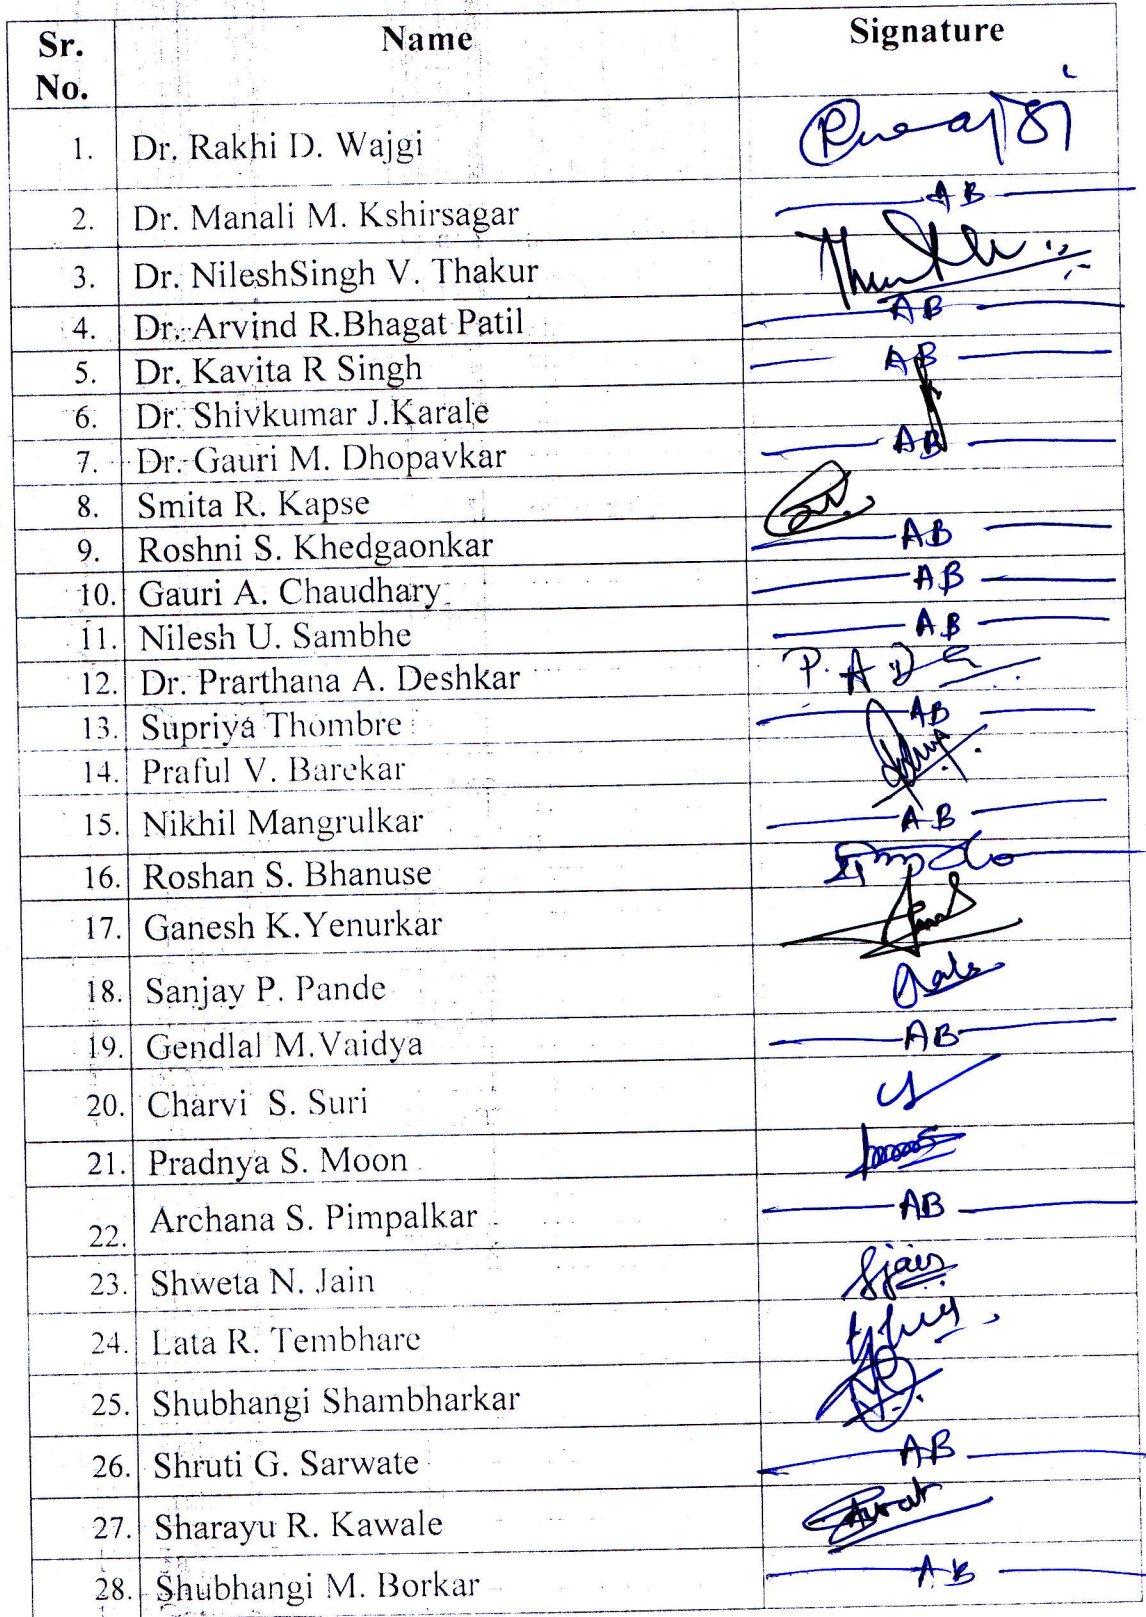 Sr. No. Name Signature
1. Dr. Rakhi D. Wajgi
2. Dr. Manali M. Kshirsagar AB
3. Dr. NileshSingh V. Thakur
4. Dr. Arvind R.Bhagat Patil AB
5. Dr. Kavita R Singh AB
6. Dr. Shivkumar J.Karale
7. Dr. Gauri M. Dhopavkar AB
8. Smita R. Kapse
9. Roshni S. Khedgaonkar AB
10. Gauri A. Chaudhary AB
11. Nilesh U. Sambhe AB
12. Dr. Prarthana A. Deshkar
13. Supriya Thombre AB
14. Praful V. Barekar
15. Nikhil Mangrulkar AB
16. Roshan S. Bhanuse
17. Ganesh K.Yenurkar
18. Sanjay P. Pande
19. Gendlal M.Vaidya AB
20. Charvi S. Suri
21. Pradnya S. Moon
22. Archana S. Pimpalkar AB
23. Shweta N. Jain Sjain
24. Lata R. Tembhare
25. Shubhangi Shambharkar
26. Shruti G. Sarwate AB
27. Sharayu R. Kawale
28. Shubhangi M. Borkar AB